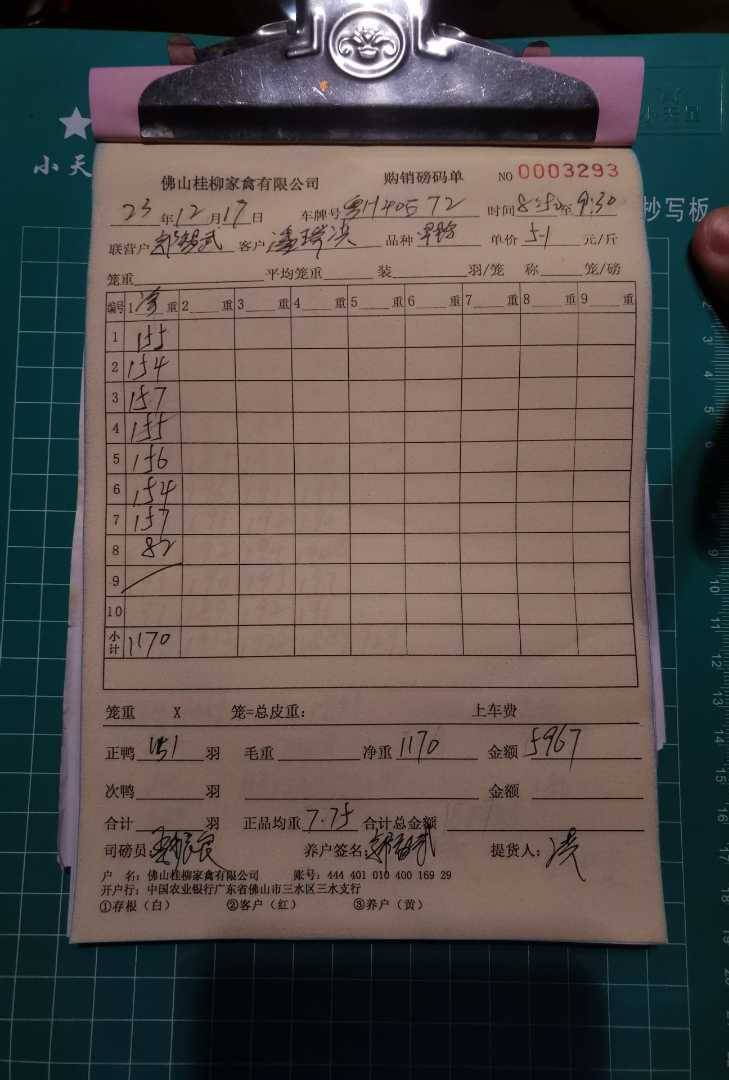 小天
抄写板
佛山桂柳家禽有限公司 购销磅码单 NO 0003293
23年12月17日 车牌号 粤H40572 时间 8:50至9:30
联营户 客户 品种 单价 5.1 元/斤
笼重 平均笼重 装 羽/笼 称 笼/磅
编号 1 净 重 2 重 3 重 4 重 5 重 6 重 7 重 8 重 9 重
1 155
2 154
3 157
4 155
5 156
6 154
7 157
8 82
9
10
小计 1170
笼重 X 笼=总皮重: 上车费
正鸭 151 羽 毛重 净重 1170 金额 5967
次鸭 羽 金额
合计 羽 正品均重 7.75 合计总金额
司磅员: 养户签名: 提货人:
户 名: 佛山桂柳家禽有限公司 账号: 444 401 010 400 169 29
开户行: 中国农业银行广东省佛山市三水区三水支行
①存根(白) ②客户(红) ③养户(黄)